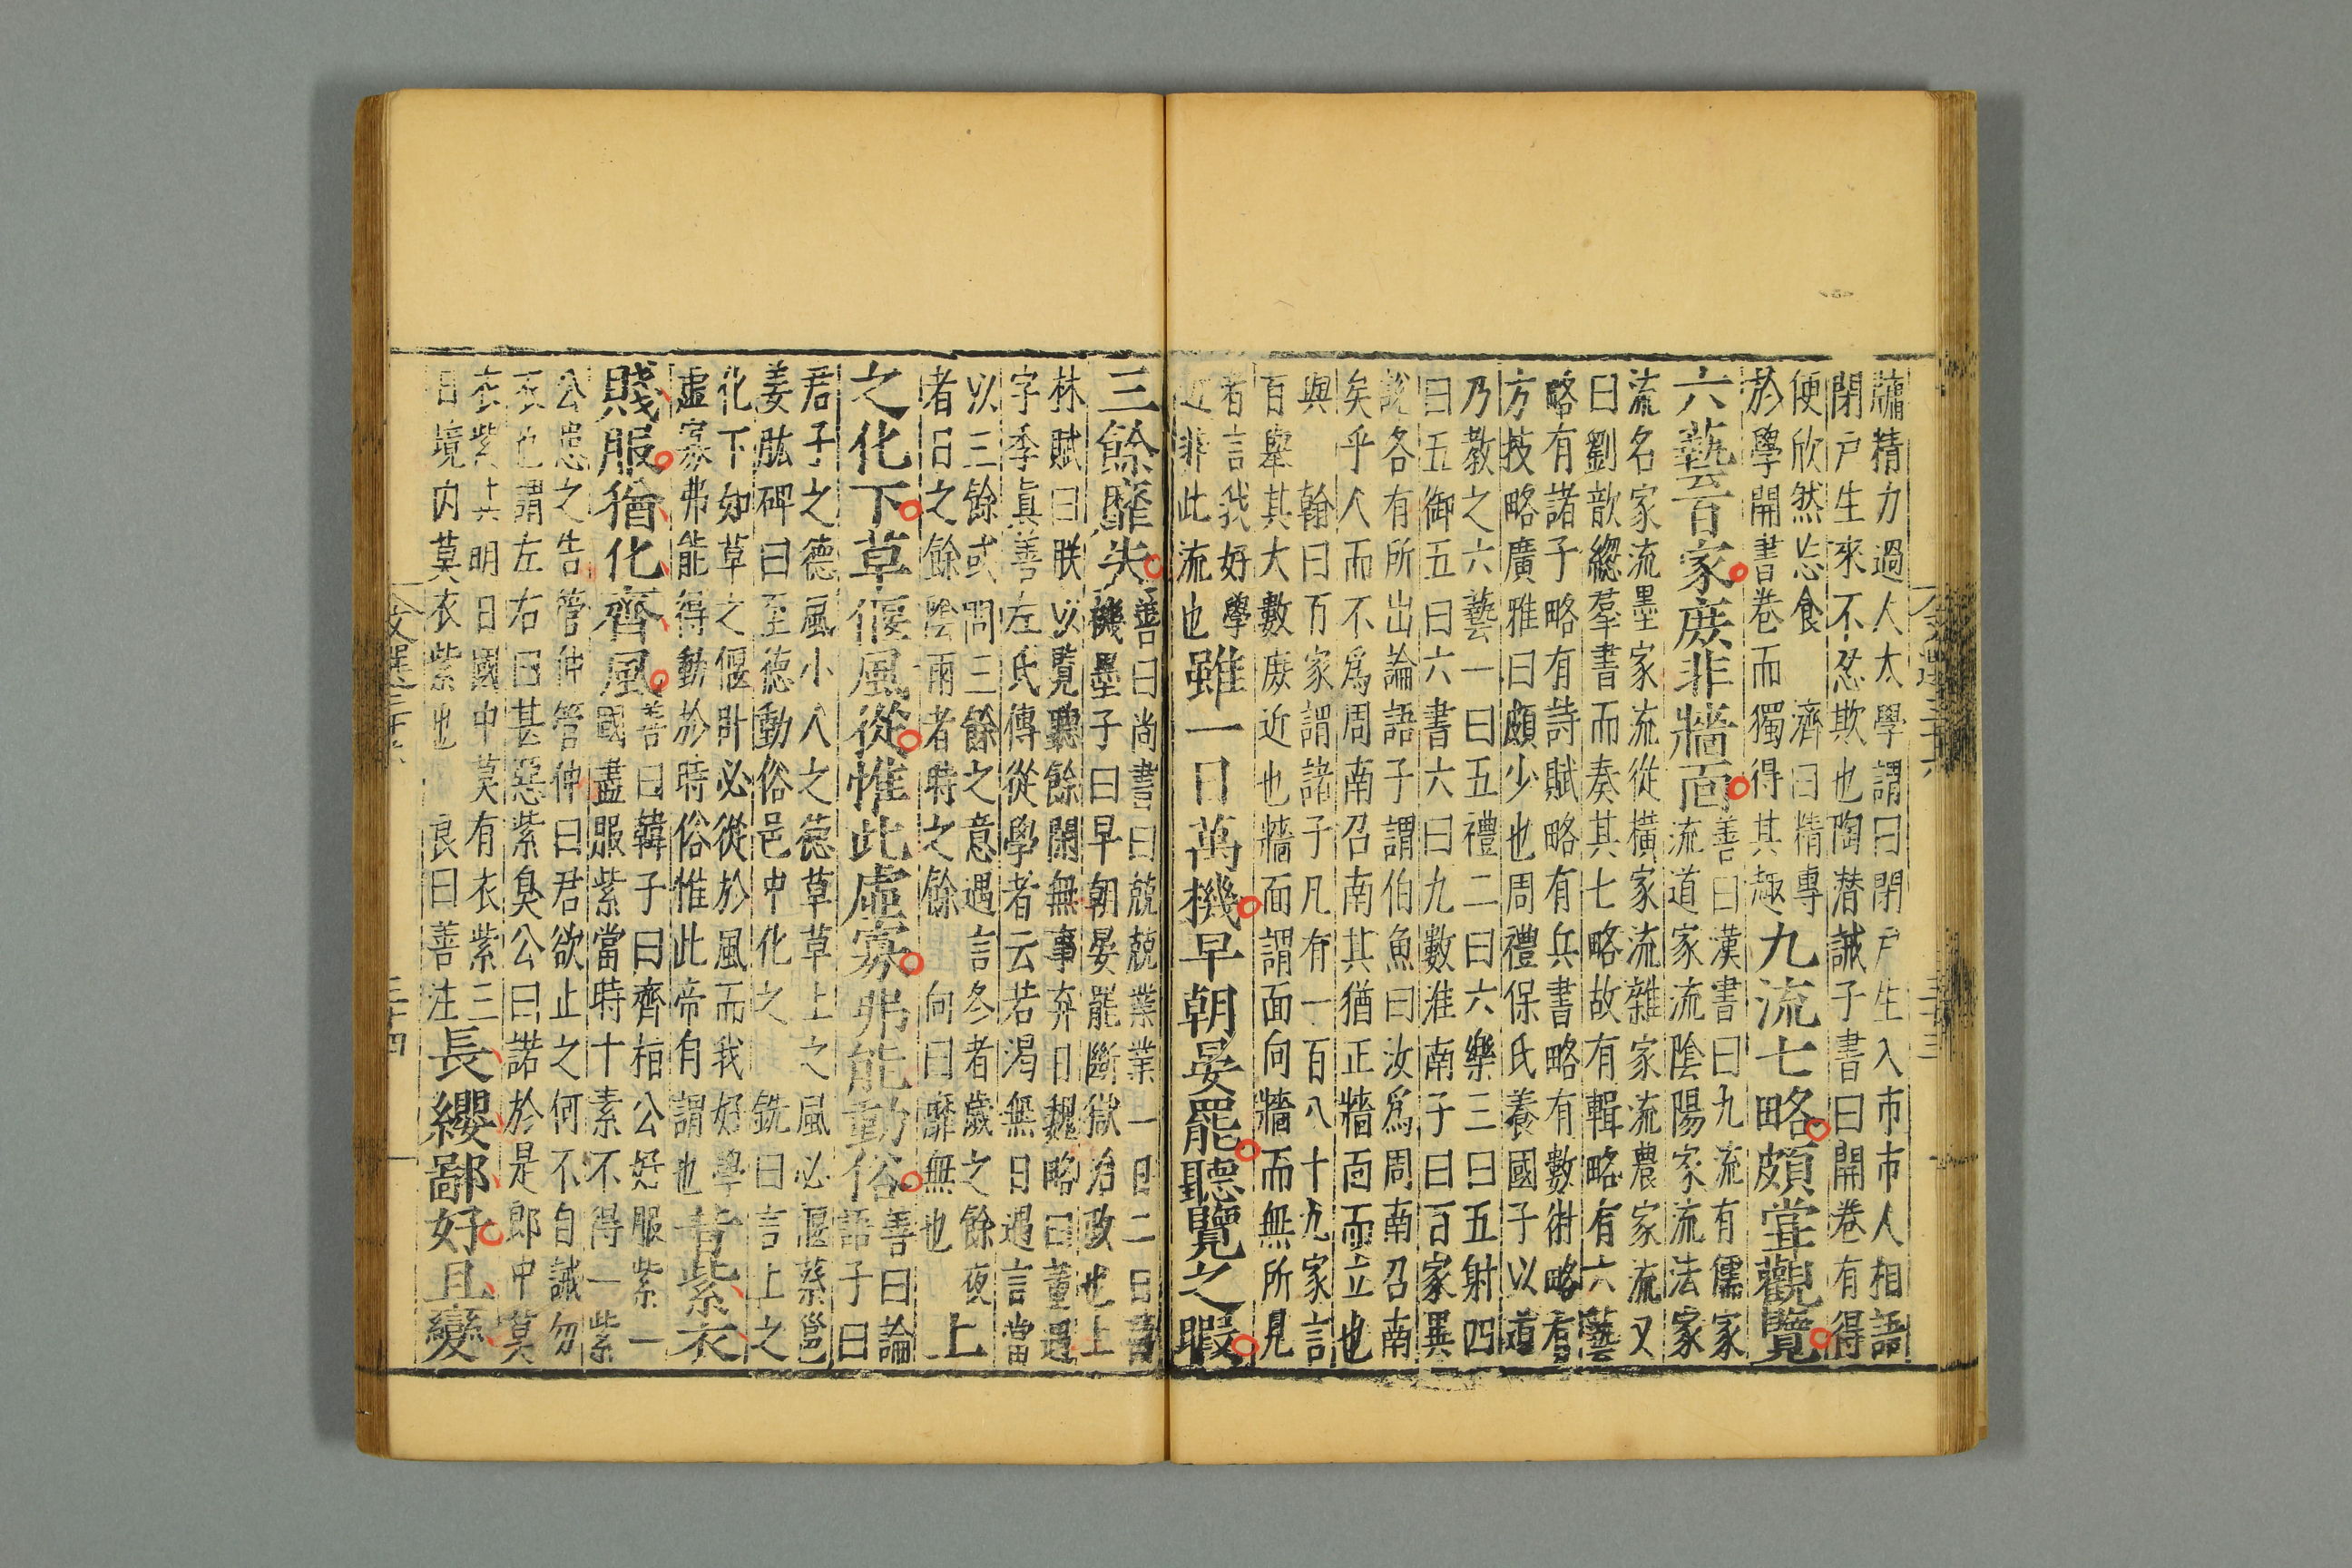 牗精力過人太學謂曰閉戶生入市市人相語
閉戶生來不忍欺也陶潛誡子書曰開卷有得
便欣然忘食 濟曰精專
於學開書卷而獨得其趣
九流七略頗甞觀覽
六藝百家庶非牆靣
善曰漢書曰九流有儒家
流道家流陰陽家流法家
流名家流墨家流從橫家流雜家流農家流又
曰劉歆緫羣書而奏其七略故有輯略有六藝
略有諸子略有詩賦略有兵書略有數術略有
方技略廣雅曰頗少也周禮保氏養國子以道
乃教之六藝一曰五禮二曰六樂三曰五射四
曰五御五曰六書六曰九數淮南子曰百家異
說各有所出論語子謂伯魚曰汝爲周南召南
矣乎人而不爲周南召南其猶正牆靣而立也
與 翰曰百家謂諸子凡有一百八十九家言
百舉其大數庶近也牆面謂面向牆而無所見
者言我好學
近非此流也
雖一日萬機早朝晏罷聽覽之暇
三餘靡失
善曰尚書曰兢兢業業一日二日萬
機墨子曰早朝晏罷斷獄治政也上
林賦曰朕以覽聽餘閑無事弃日魏略曰董遇
字季眞善左氏傳從學者云若渴無日遇言當
以三餘或問三餘之意遇言冬者歲之餘夜
者日之餘陰雨者時之餘 向曰靡無也
上
之化下草偃風從惟此虛寡弗能動俗
善曰論
語子曰
君子之德風小人之德草草上之風必偃蔡邕
姜肱碑曰至德動俗邑中化之 銑曰言上之
化下如草之偃則必從於風而我好學
虛寡弗能得動於時俗惟此帝自謂也
昔紫衣
賤服猶化齊風
善曰韓子曰齊桓公好服紫一
國盡服紫當時十素不得一紫
公患之告管仲管仲曰君欲止之何不自誡勿
衣也謂左右曰甚惡紫臭公曰諾於是郎中莫
衣紫其明日國中莫有衣紫三
日境内莫衣紫也 良曰善注
長纓鄙好且變